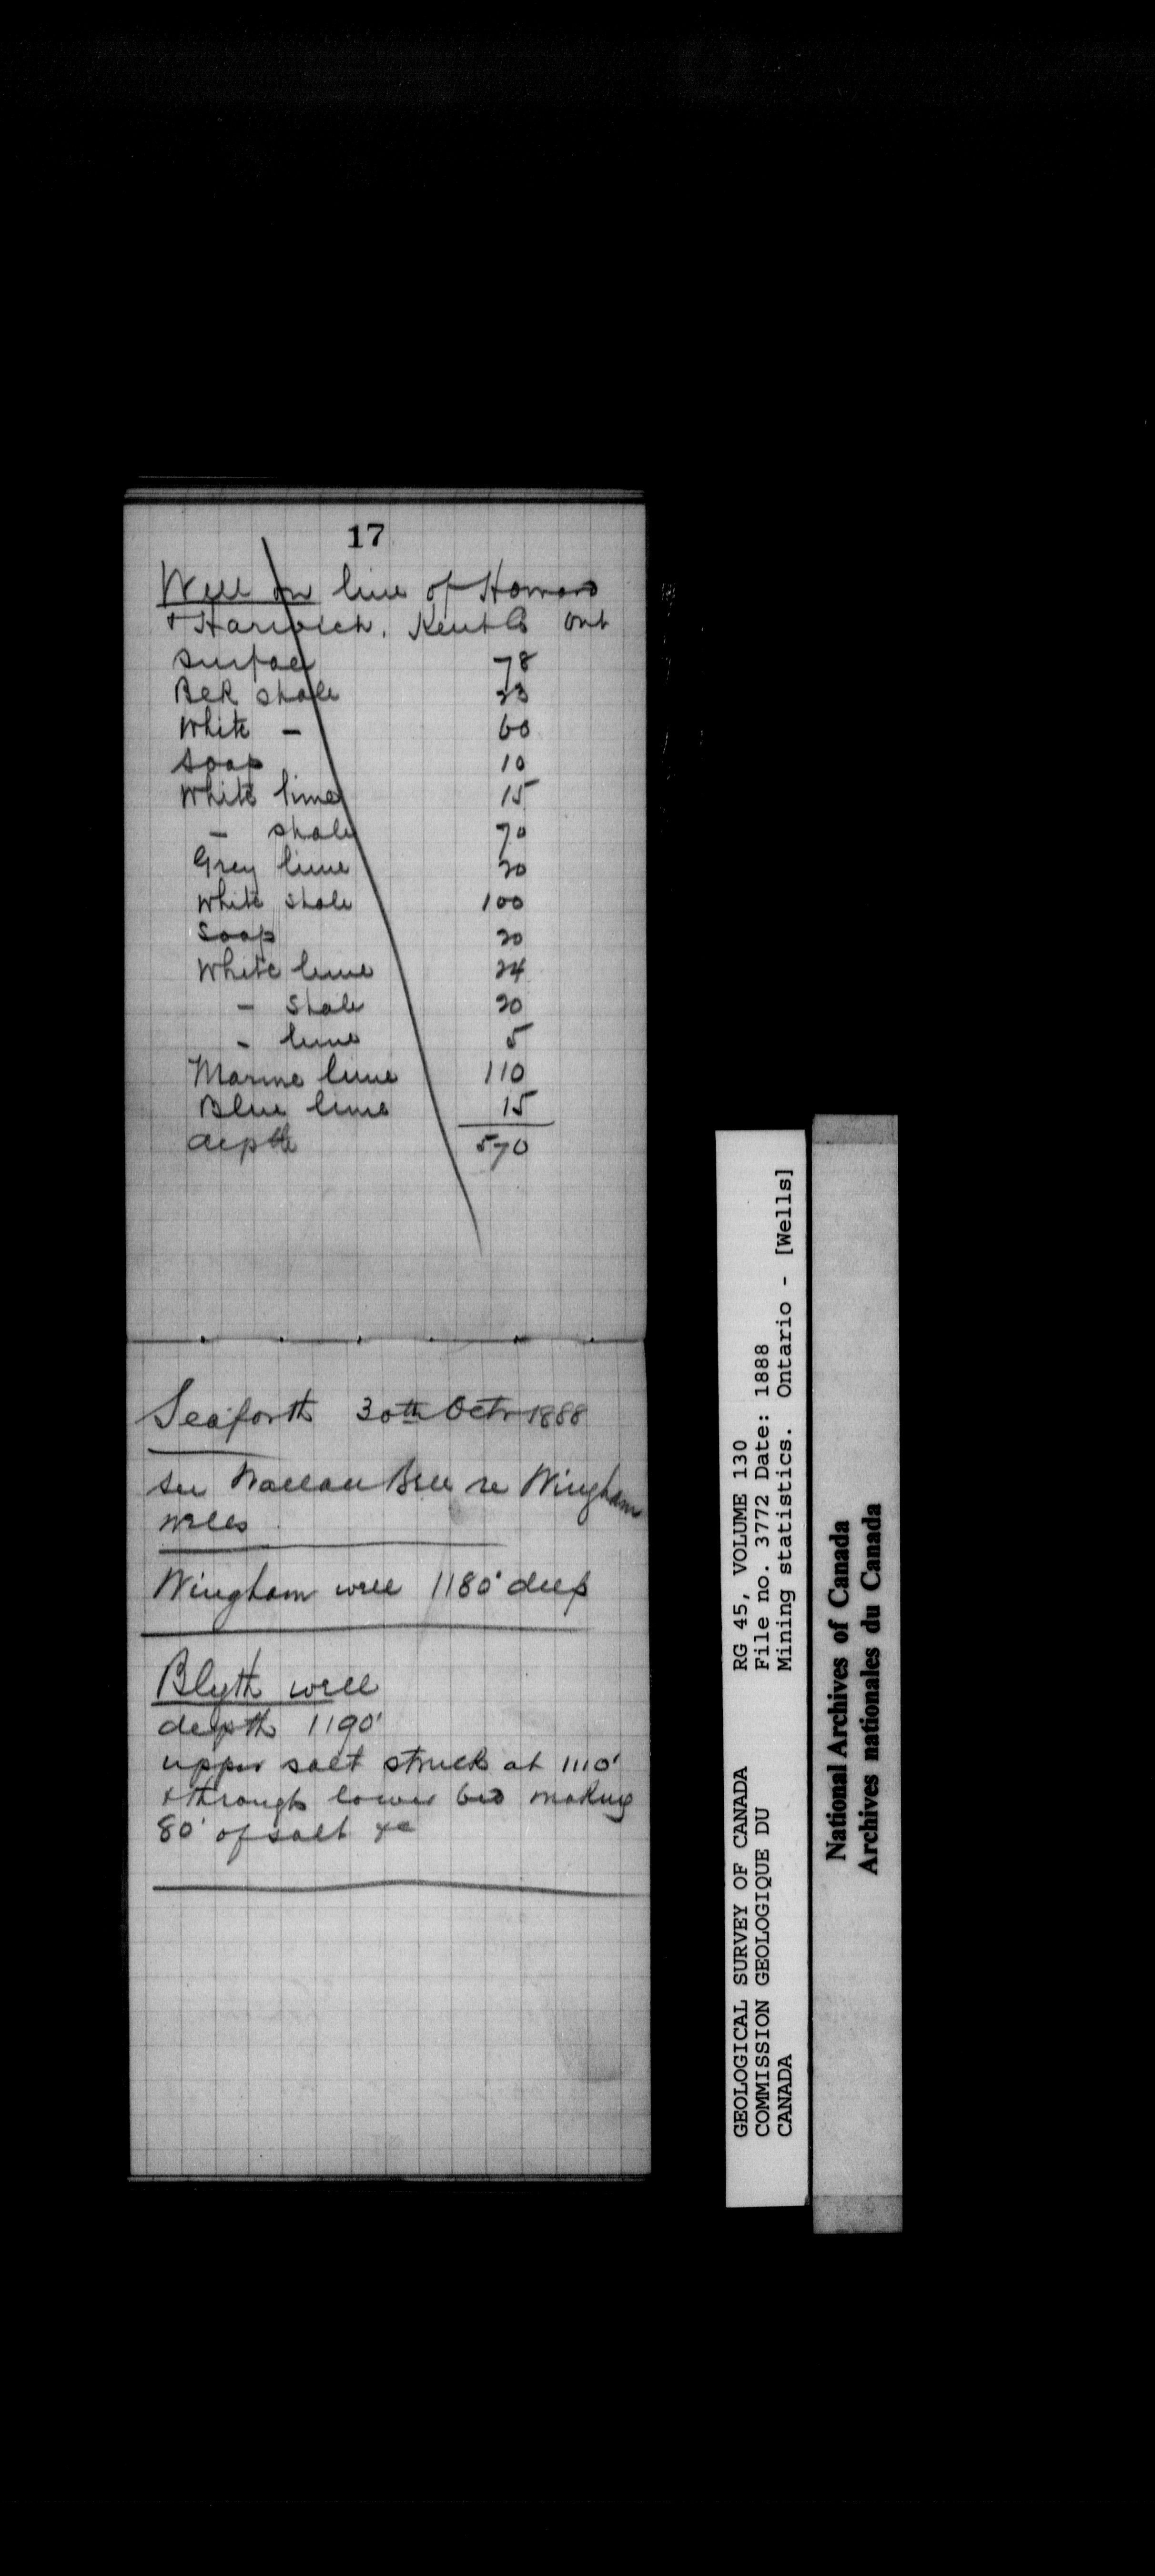 17
Well on line of Howard
& Harwich. Kent Co Ont
Surface 78
Blk shale 23
White — 60
Soap 10
White lime 15
— shale 70
Grey lime 20
White shale 100
Soap 20
White lime 24
— Shale 20
— lime 5
Marine lime 110
Blue lime 15
depth 570
Seaforth 30th Octr 1888
see re Wingham
wells
Wingham well 1180' deep
Blyth well
depth 1190'
upper salt struck at 1110'
& through lower bed making
80' of salt &c
GEOLOGICAL SURVEY OF CANADA
COMMISSION GEOLOGIQUE DU
CANADA
RG 45, VOLUME 130
File no. 3772 Date: 1888
Mining statistics. Ontario - [Wells]
National Archives of Canada
Archives nationales du Canada